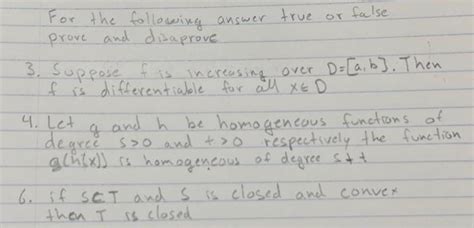 For the following answer true or false
prove and disaprove
3. Suppose f is increasing over D=[a,b]. Then
f is differentiable for all x∈D
4. Let g and h be homogeneous functions of
degree s>0 and t>0 respectively the function
g(h(x)) is homogeneous of degree s+t
6. if S⊂T and S is closed and convex
then T is closed